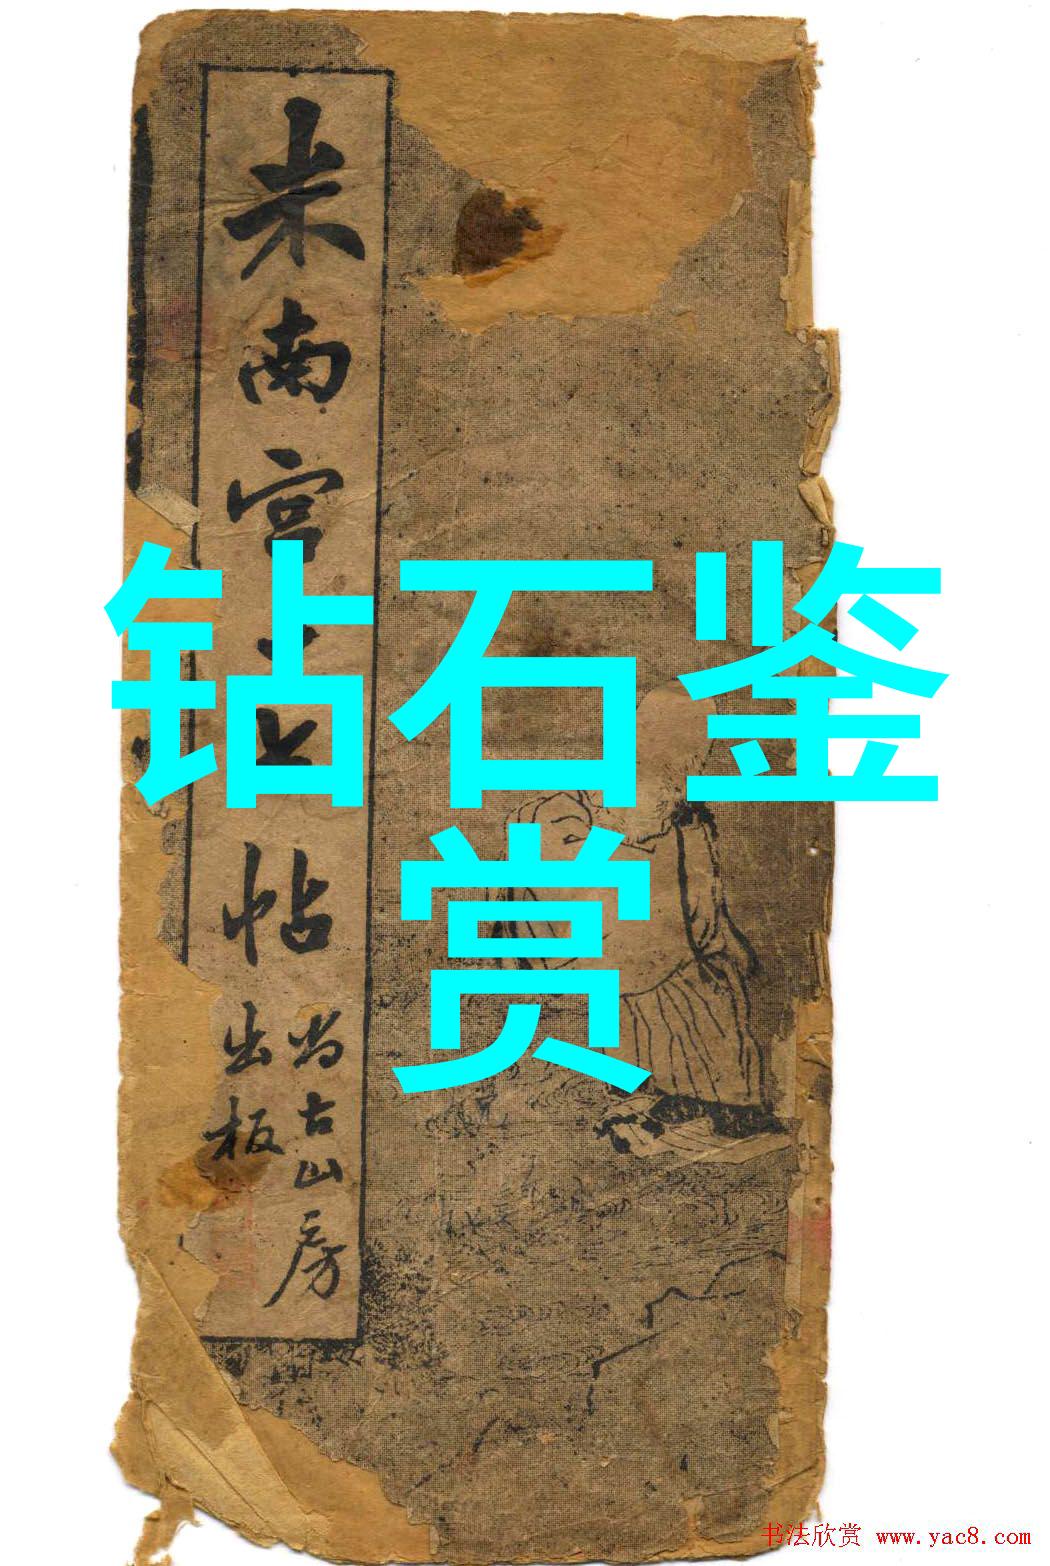 米南宮帖
尚古山房
出板
钻石鉴
赏
书法欣赏 www.yac8.com